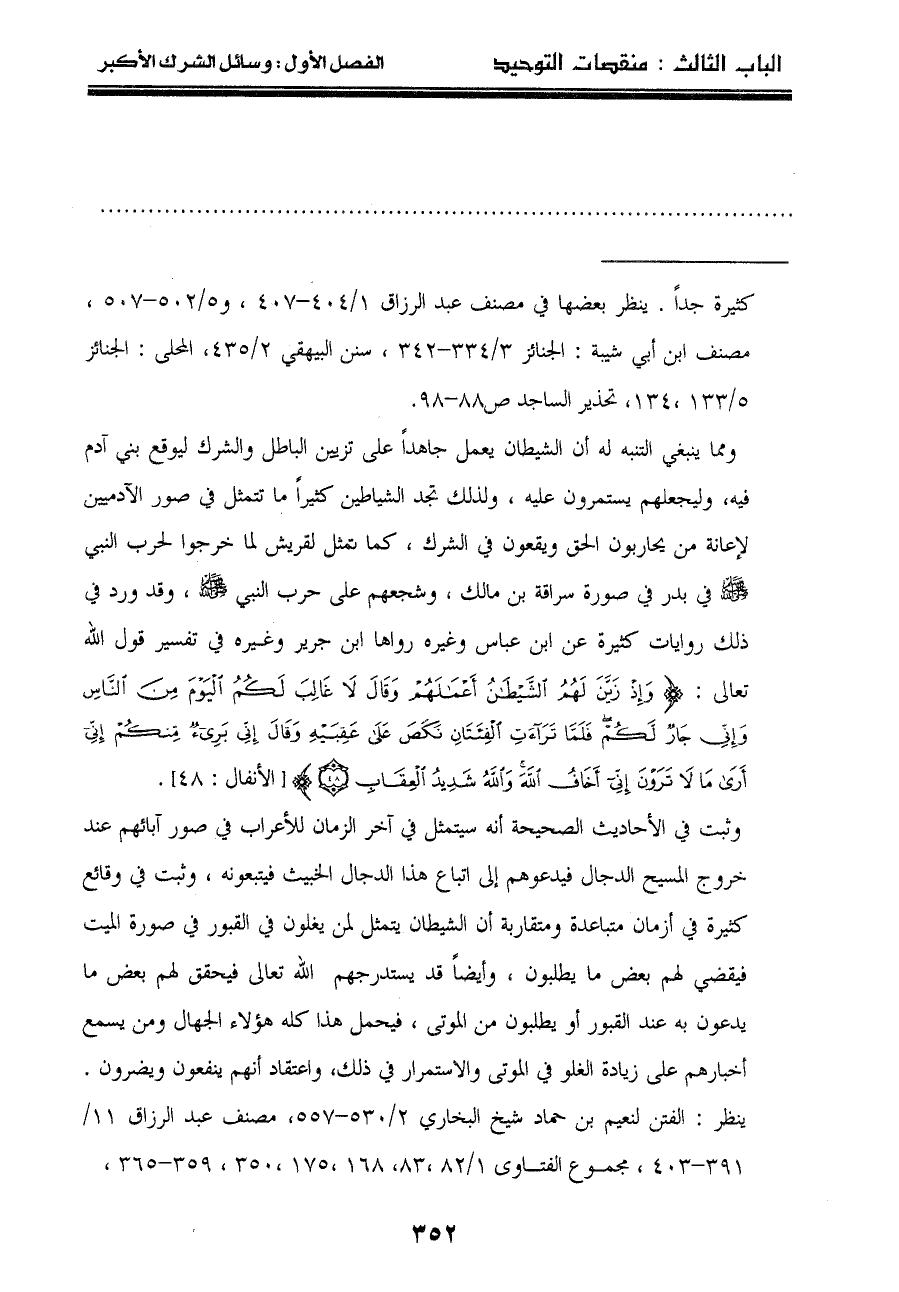 الباب الثالث : منقصات التوحيد الفصل الأول : وسائل الشرك الأكبر
................................................................................
كثيرة جداً . ينظر بعضها في مصنف عبد الرزاق ٤٠٤/١–٤٠٧ ، و٥٠٢/٥–٥٠٧ ،
مصنف ابن أبي شيبة : الجنائز ٣٣٤/٣–٣٤٢ ، سنن البيهقي ٤٣٥/٢، المحلى : الجنائز
١٣٣/٥ ،١٣٤، تحذير الساجد ص٨٨–٩٨.
ومما ينبغي التنبه له أن الشيطان يعمل جاهداً على تزيين الباطل والشرك ليوقع بني آدم
فيه، وليجعلهم يستمرون عليه ، ولذلك تجد الشياطين كثيراً ما تتمثل في صور الآدميين
لإعانة من يحاربون الحق ويقعون في الشرك ، كما تمثل لقريش لما خرجوا لحرب النبي
ﷺ في بدر في صورة سراقة بن مالك ، وشجعهم على حرب النبي ﷺ ، وقد ورد في
ذلك روايات كثيرة عن ابن عباس وغيره رواها ابن جرير وغيره في تفسير قول الله
تعالى : ﴿ وَإِذْ زَيَّنَ لَهُمُ الشَّيْطَـٰنُ أَعْمَـٰلَهُمْ وَقَالَ لَا غَالِبَ لَكُمُ الْيَوْمَ مِنَ النَّاسِ
وَإِنِّي جَارٌ لَكُمْ ۖ فَلَمَّا تَرَآءَتِ الْفِئَتَانِ نَكَصَ عَلَىٰ عَقِبَيْهِ وَقَالَ إِنِّي بَرِيٓءٌ مِنكُمْ إِنِّيٓ
أَرَىٰ مَا لَا تَرَوْنَ إِنِّيٓ أَخَافُ اللَّهَ ۚ وَاللَّهُ شَدِيدُ الْعِقَابِ ٤٨ ﴾ [ الأنفال : ٤٨] .
وثبت في الأحاديث الصحيحة أنه سيتمثل في آخر الزمان للأعراب في صور آبائهم عند
خروج المسيح الدجال فيدعوهم إلى اتباع هذا الدجال الخبيث فيتبعونه ، وثبت في وقائع
كثيرة في أزمان متباعدة ومتقاربة أن الشيطان يتمثل لمن يغلون في القبور في صورة الميت
فيقضي لهم بعض ما يطلبون ، وأيضاً قد يستدرجهم الله تعالى فيحقق لهم بعض ما
يدعون به عند القبور أو يطلبون من الموتى ، فيحمل هذا كله هؤلاء الجهال ومن يسمع
أخبارهم على زيادة الغلو في الموتى والاستمرار في ذلك، واعتقاد أنهم ينفعون ويضرون .
ينظر : الفتن لنعيم بن حماد شيخ البخاري ٥٣٠/٢–٥٥٧، مصنف عبد الرزاق ١١/
٣٩١–٤٠٣ ، مجموع الفتاوى ٨٢/١ ،٨٣، ١٦٨ ،١٧٥ ،٣٥٠ ، ٣٥٩–٣٦٥ ،
٣٥٢